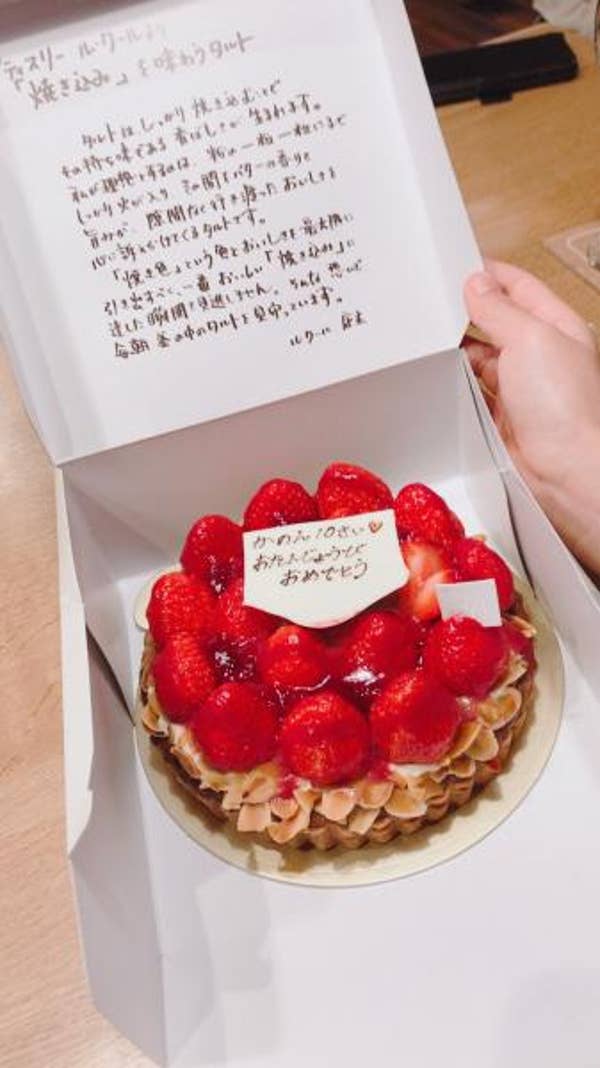 ル・クールより
「焼き込み」を味わうタルト
タルトはしっかり焼き込むことで
その持ち味である香ばしさが生まれます。
私が理想とするのは、粉の一粒一粒にまで
しっかり火が入り その間をバターの香りと
旨みが、隙間なく行き渡ったおいしさを
心に訴えかけてくるタルトです。
「焼き色」という色とおいしさを最大限に
引き出すべく、一番おいしい「焼き込み」に
達した瞬間を見逃しません。そんな想いで
毎朝 釜の中のタルトを見守っています。
ルクール 店主
かのん10さい
おたんじょうび
おめでとう